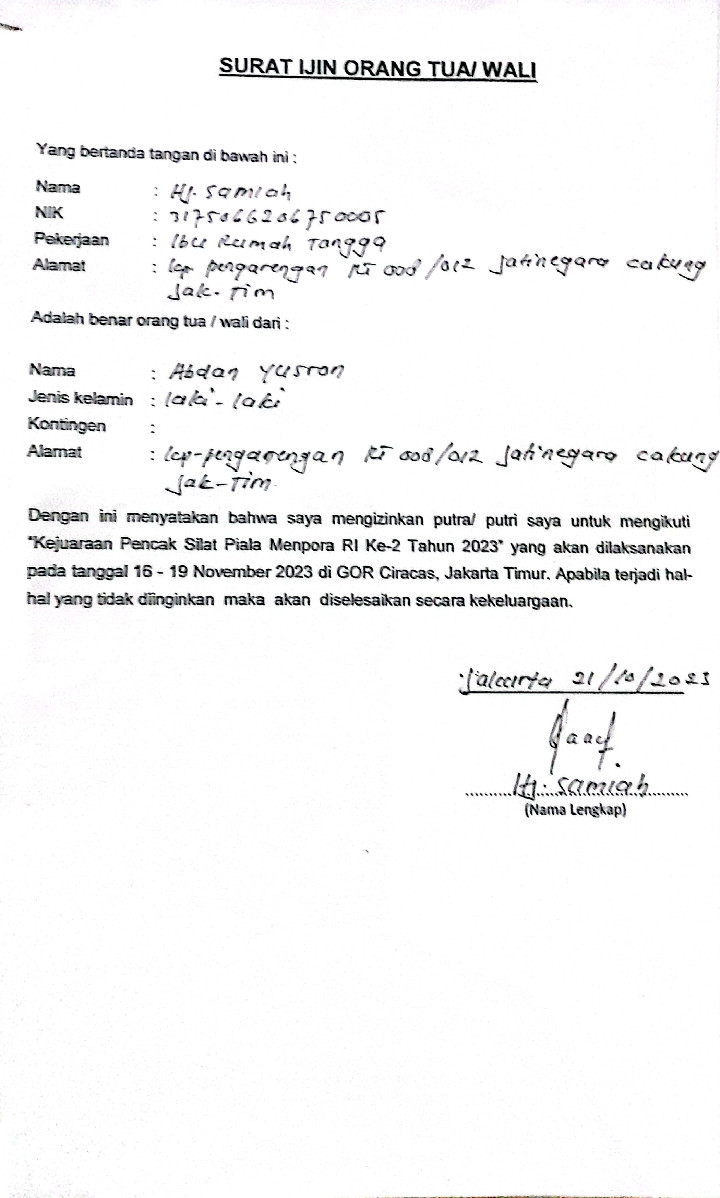 SURAT IJIN ORANG TUA/ WALI
Yang bertanda tangan di bawah ini :
Nama : Hj. Samiah
NIK : 3175066206750005
Pekerjaan : Ibu Rumah Tangga
Alamat : kp pengarengan RT 008/012 Jatinegara cakung
Jak-Tim
Adalah benar orang tua / wali dari :
Nama : Abdan Yusron
Jenis kelamin : laki-laki
Kontingen :
Alamat : kp-pengarengan RT 008/012 Jatinegara cakung
Jak-Tim.
Dengan ini menyatakan bahwa saya mengizinkan putra/ putri saya untuk mengikuti
"Kejuaraan Pencak Silat Piala Menpora RI Ke-2 Tahun 2023" yang akan dilaksanakan
pada tanggal 16 - 19 November 2023 di GOR Ciracas, Jakarta Timur. Apabila terjadi hal-
hal yang tidak diinginkan maka akan diselesaikan secara kekeluargaan.
Jakarta 21/10/2023
Hj. Samiah
(Nama Lengkap)